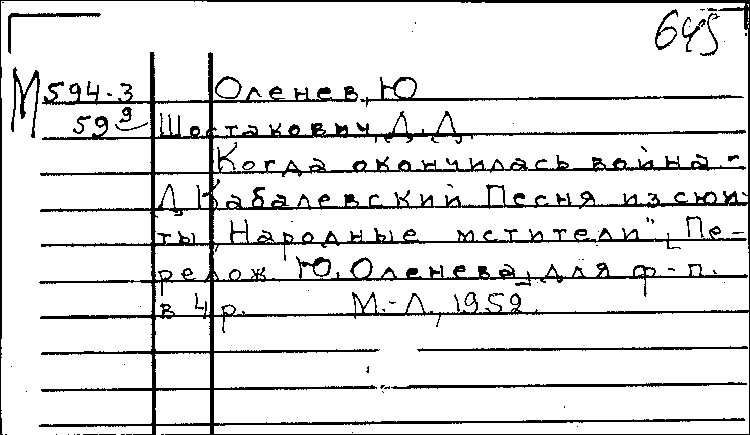 645
М 594-3 Оленев, Ю
59 9 Шостакович, Д. Д.
Когда окончилась война -
Д. Кабалевский Песня из сюи-
ты „Народные мстители" [Пе-
релож. Ю. Оленева] для ф-п.
в 4 р. М.-Л., 1952.